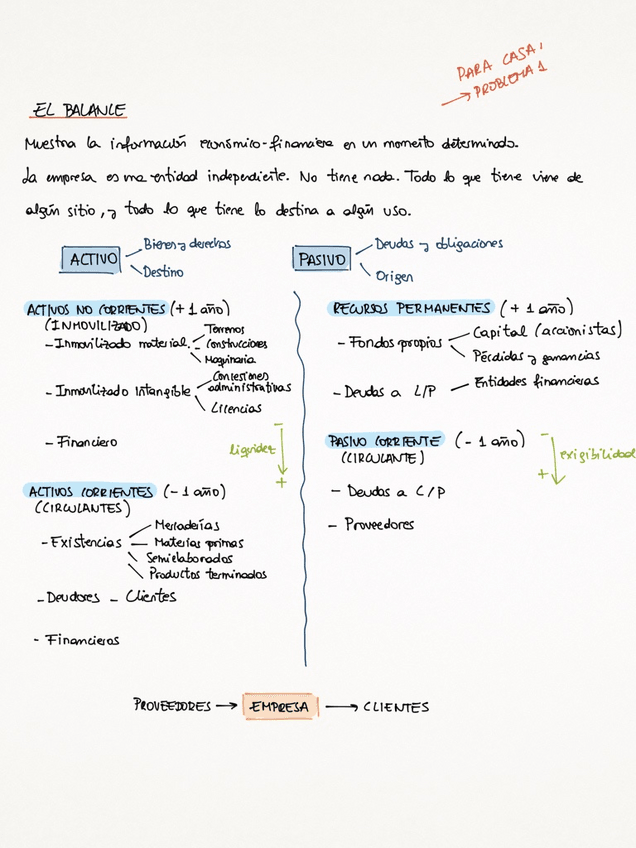 PARA CASA:
→ PROBLEMA 1
EL BALANCE
Muestra la información económico-financiera en un momento determinado.
La empresa es una entidad independiente. No tiene nada. Todo lo que tiene viene de
algún sitio, y todo lo que tiene lo destina a algún uso.
ACTIVO
Bienes y derechos
Destino
PASIVO
Deudas y obligaciones
Origen
ACTIVOS NO CORRIENTES (+ 1 año)
(INMOVILIZADO)
- Inmovilizado material
Terrenos
Construcciones
Maquinaria
- Inmovilizado Intangible
Concesiones
administrativas
Licencias
- Financiero
liquidez
-
+
ACTIVOS CORRIENTES (- 1 año)
(CIRCULANTES)
- Existencias
Mercaderías
Materias primas
Semielaborados
Productos terminados
- Deudores - Clientes
- Financieros
RECURSOS PERMANENTES (+ 1 año)
- Fondos propios
Capital (accionistas)
Pérdidas y ganancias
- Deudas a L/P
Entidades financieras
PASIVO CORRIENTE (- 1 año)
(CIRCULANTE)
-
+
exigibilidad
- Deudas a C/P
- Proveedores
PROVEEDORES → EMPRESA → CLIENTES